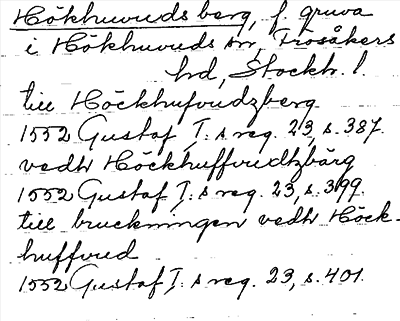 Hökhuvuds berg, f. gruva
i Hökhuvuds sn, Frösåkers
hd, Stockh. l.
till Höckhufvudzberg
1552 Gustaf I:s reg. 23, s. 387.
vedh Höckhuffvudtzbärg
1552 Gustaf I:s reg. 23, s. 399.
till bruckningen vedh Höck-
huffvud
1552 Gustaf I:s reg. 23, s. 401.